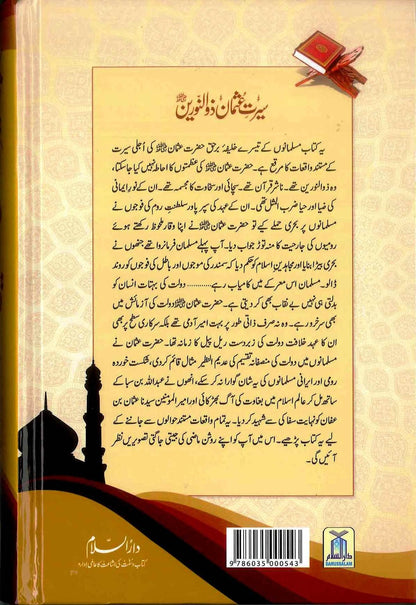 سیرت عثمان ذوالنورین رضی اللہ عنہ
یہ کتاب مسلمانوں کے تیسرے خلیفۂ برحق حضرت عثمان رضی اللہ عنہ کی اُجلی سیرت
کے مستند واقعات کا مرقع ہے۔ حضرت عثمان رضی اللہ عنہ کی عظمتوں کا احاطہ نہیں کیا جا سکتا،
وہ ذوالنورین تھے۔ ناشر قرآن تھے۔ سچائی اور سخاوت کا مجسمہ تھے۔ ان کے نور ایمانی
کی ضیا اور حیا ضرب المثل تھی۔ ان کے عہد کی سپر پاور سلطنتِ روم کی فوجوں نے
مسلمانوں پر بحری حملے کیے تو حضرت عثمان رضی اللہ عنہ نے اپنا وقار ملحوظ رکھتے ہوئے
رومیوں کی جارحیت کا منہ توڑ جواب دیا۔ آپ پہلے مسلمان فرمانروا تھے جنھوں نے
بحری بیڑا بنایا اور مجاہدینِ اسلام کو حکم دیا کہ سمندر کی موجوں اور باطل کی فوجوں کو روند
ڈالو۔ مسلمان اس معرکے میں کامیاب رہے ......... دولت کی بہتات انسان کو
بدلتی ہی نہیں بے نقاب بھی کر دیتی ہے۔ حضرت عثمان رضی اللہ عنہ دولت کی آزمائش میں
بھی سرخرو رہے۔ وہ نہ صرف ذاتی طور پر بہت امیر آدمی تھے بلکہ سرکاری سطح پر بھی
ان کا عہد خلافت دولت کی زبردست ریل پیل کا زمانہ تھا۔ حضرت عثمان نے
مسلمانوں میں دولت کی منصفانہ تقسیم کی عدیم النظیر مثال قائم کر دی، شکست خوردہ
رومی اور ایرانی مسلمانوں کی یہ شان گوارا نہ کر سکے، انھوں نے عبداللہ بن سبا کے
ساتھ مل کر عالم اسلام میں بغاوت کی آگ بھڑکائی اور امیر المؤمنین سیدنا عثمان بن
عفان کو نہایت سفاکی سے شہید کر دیا۔ یہ تمام واقعات مستند حوالوں سے جاننے کے
لیے یہ کتاب پڑھیے۔ اس میں آپ کو اپنے روشن ماضی کی جیتی جاگتی تصویریں نظر
آئیں گی۔
دارالسلام
کتاب و سنت کی اشاعت کا عالمی ادارہ
9 786035 000543
دارالسلام
DARUSSALAM